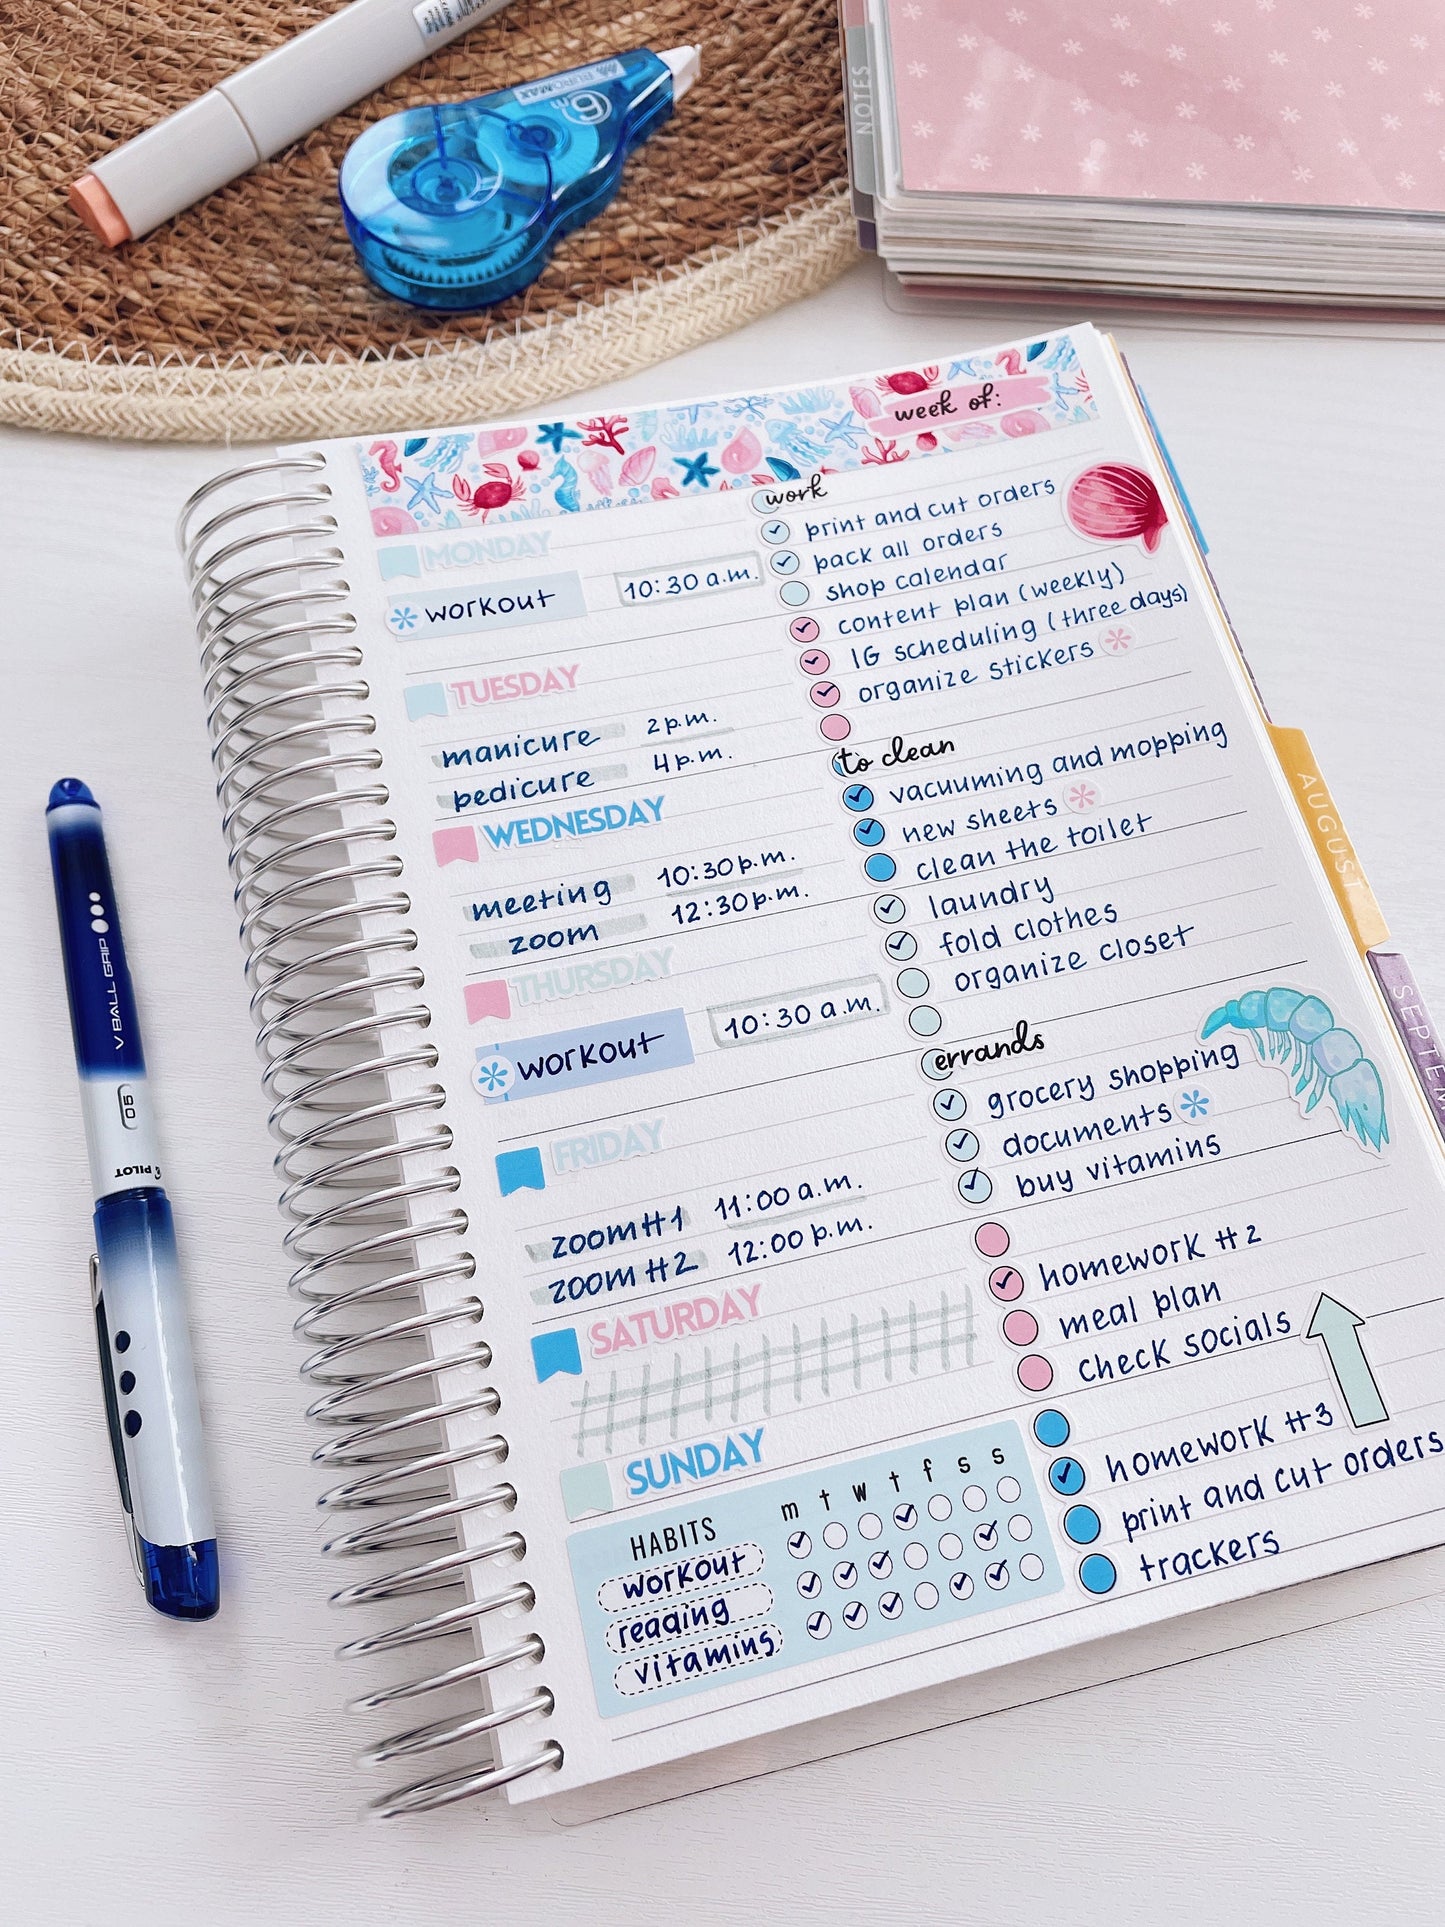 PUROMAX
6m
NOTES
week of:
MONDAY
workout
10:30 a.m.
TUESDAY
manicure 2 p.m.
pedicure 4 p.m.
WEDNESDAY
meeting 10:30 p.m.
zoom 12:30 p.m.
THURSDAY
workout
10:30 a.m.
FRIDAY
zoom #1 11:00 a.m.
zoom #2 12:00 p.m.
SATURDAY
SUNDAY
HABITS m t w t f s s
workout
reading
vitamins
work
print and cut orders
pack all orders
shop calendar
content plan (weekly)
IG scheduling (three days)
organize stickers
to clean
vacuuming and mopping
new sheets
clean the toilet
laundry
fold clothes
organize closet
errands
grocery shopping
documents
buy vitamins
homework #2
meal plan
check socials
homework #3
print and cut orders
trackers
AUGUST
SEPTEM
V BALL GRIP
05
PILOT